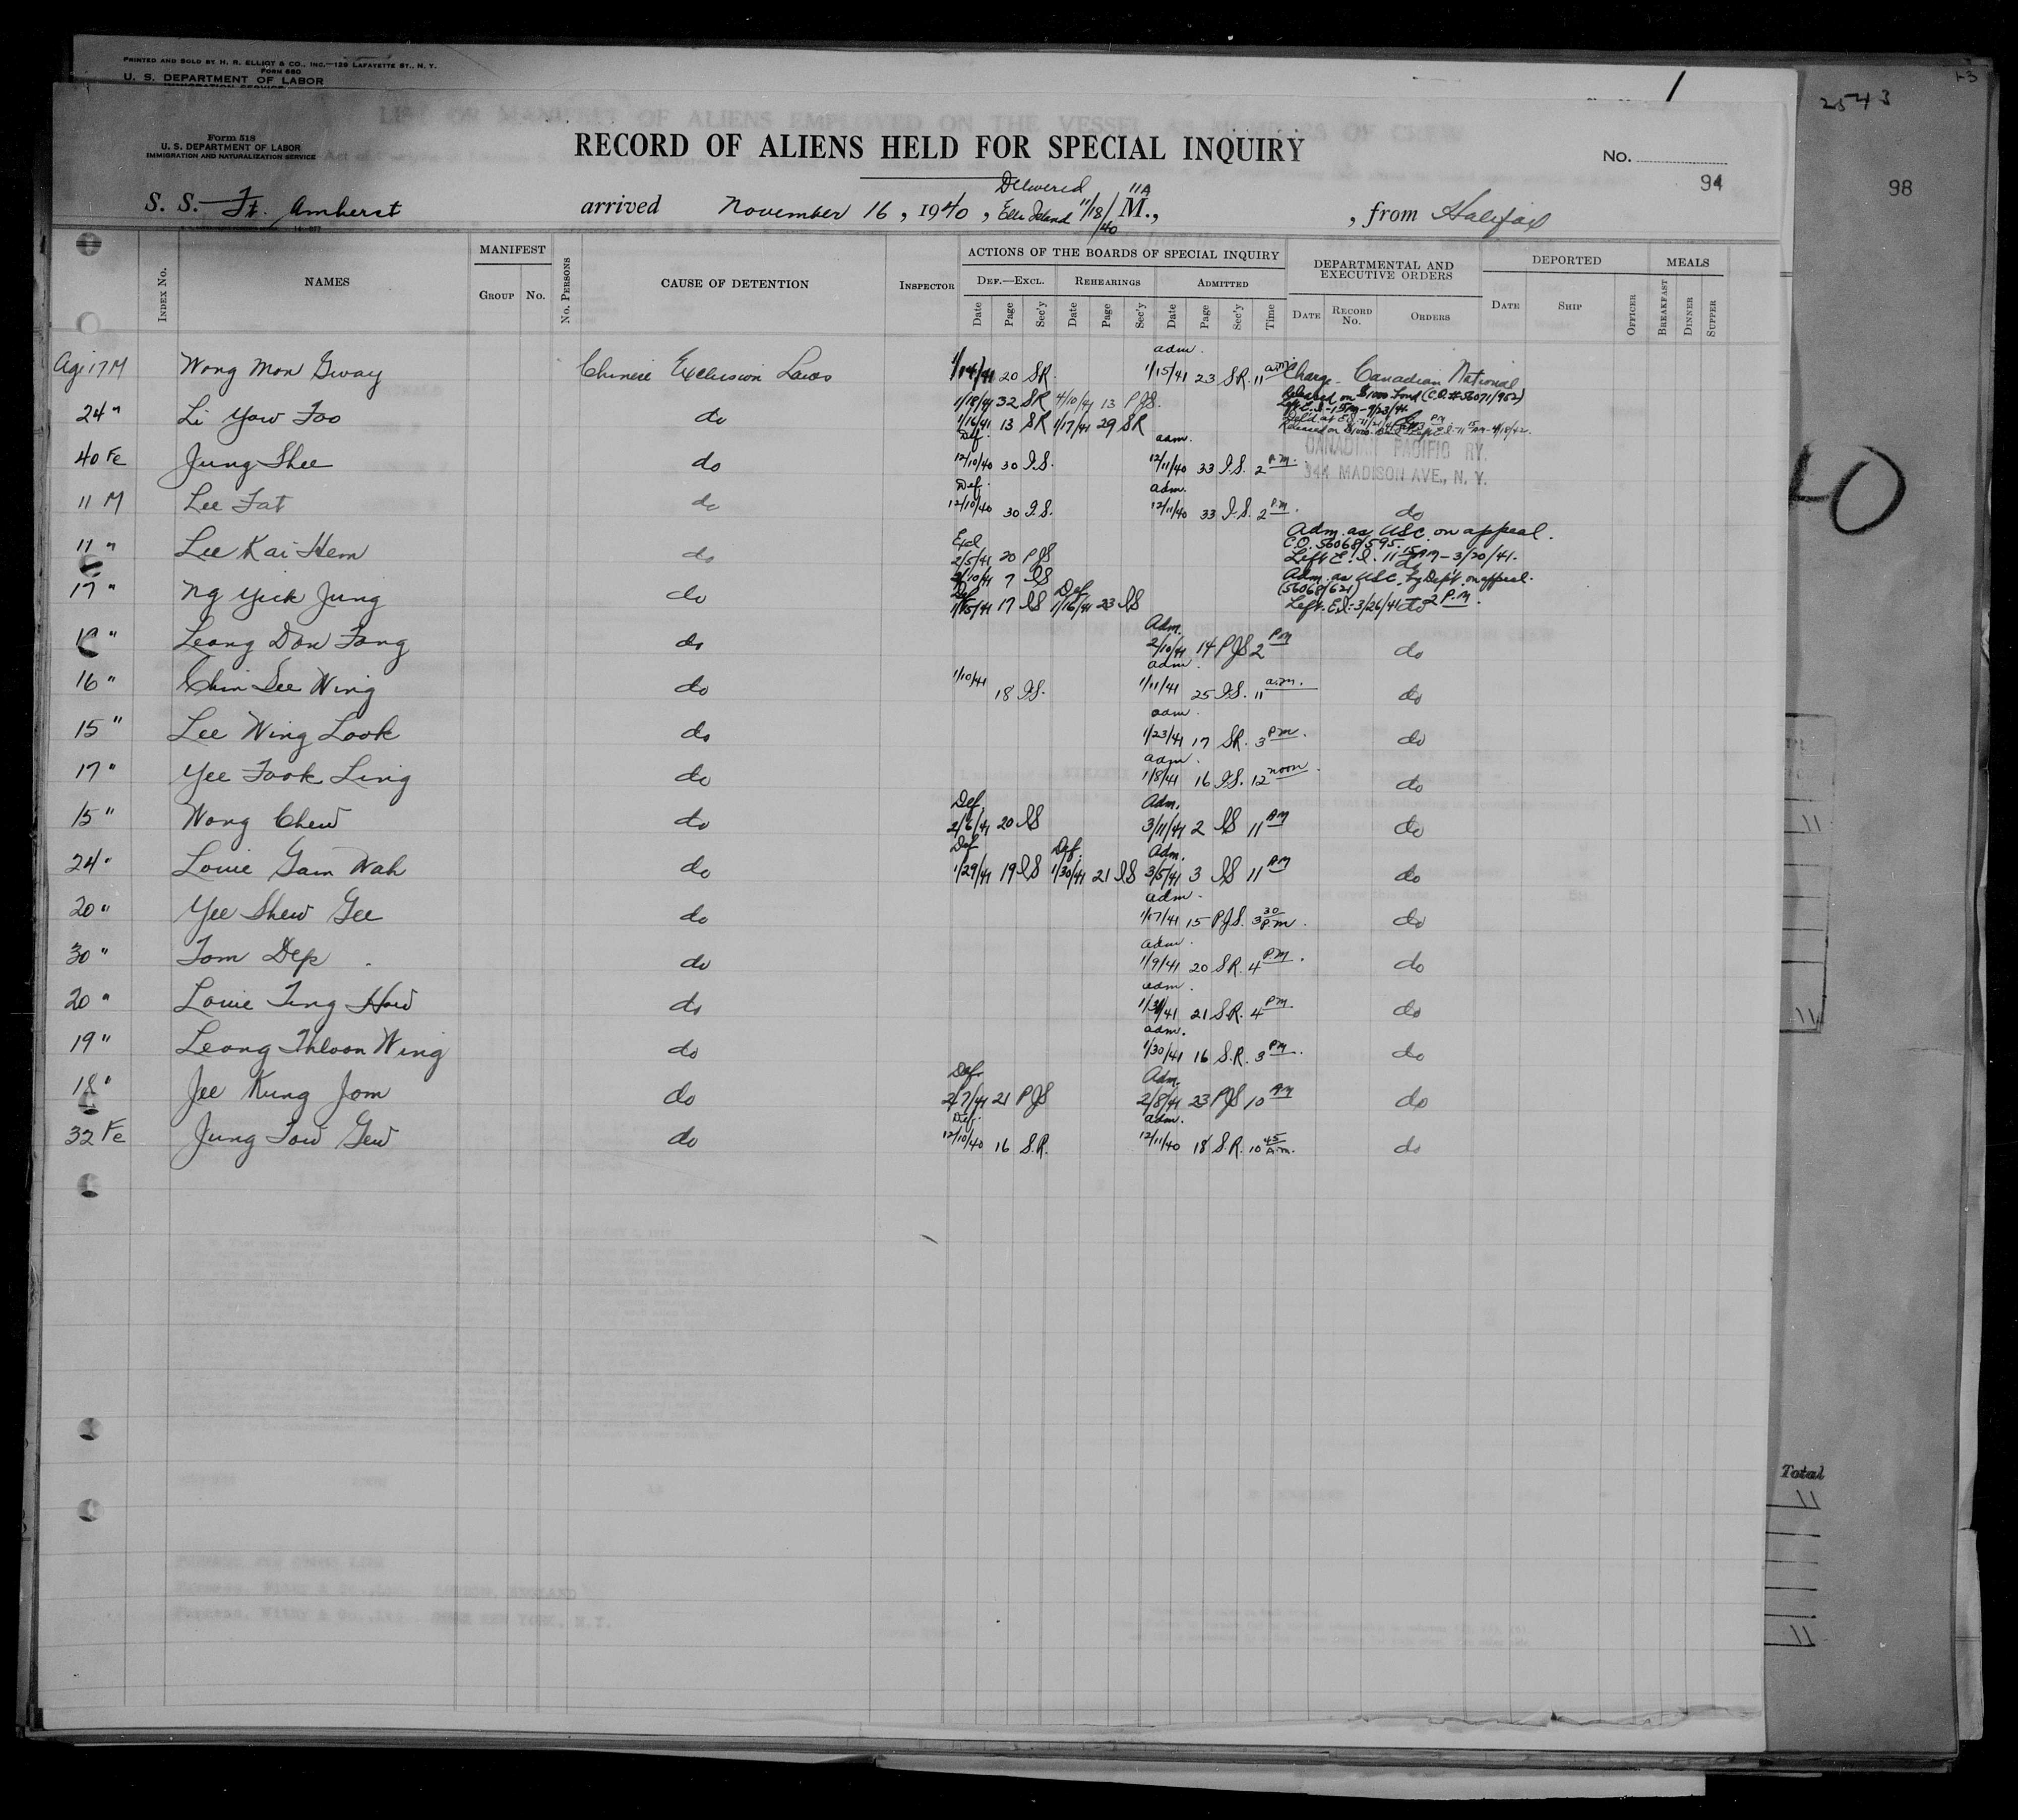 PRINTED AND SOLD BY H. R. ELLIOT & CO., INC.—129 LAFAYETTE ST., N. Y.
Form 680
U. S. DEPARTMENT OF LABOR
1
2543
Form 518
U. S. DEPARTMENT OF LABOR
IMMIGRATION AND NATURALIZATION SERVICE
RECORD OF ALIENS HELD FOR SPECIAL INQUIRY
No.
94
98
S. S. Ft. Amherst arrived November 16, 1940, Delivered Ellis Island 11/18/40 11A M., , from Halifax
Index No. NAMES MANIFEST Group No. No. Persons CAUSE OF DETENTION Inspector ACTIONS OF THE BOARDS OF SPECIAL INQUIRY DEPARTMENTAL AND EXECUTIVE ORDERS DEPORTED MEALS
Def.—Excl. Rehearings Admitted
Date Page Sec'y Date Page Sec'y Date Page Sec'y Time Date Record No. Orders Date Ship Officer Breakfast Dinner Supper
Age 17 M Wong Mon Gway Chinese Exclusion Laws 1/14/41 20 SR. adm. 1/15/41 23 SR. 11 a.m. Charge - Canadian National
1/18/41 32 SR 4/10/41 13 PJS. Released on $1000 bond (C.O.#56071/952)
24 " Li Yow Foo do 1/16/41 13 SR 1/17/41 29 SR
40 Fe Jung Shee do Def. 12/10/40 30 I.S. adm. 12/11/40 33 I.S. 2 P.M. CANADIAN PACIFIC RY.
344 MADISON AVE., N. Y.
11 M Lee Fat do Def. 12/10/40 30 I.S. adm. 12/11/40 33 I.S. 2 P.M. do
11 " Lee Kai Hem do Excl 2/5/41 20 PJS Adm. as USC. on appeal.
C.O. 56068/595-
Left E.I. 11 15 AM - 3/20/41.
17 " Ng Yick Jung do 2/10/41 7 IS Def 1/15/41 17 IS Def 1/16/41 23 IS Adm. as USC. by Dep't. on appeal.
(56068/621)
Left. E.I. - 3/26/41 do 2 P.M.
" Leong Don Fong do Adm. 2/10/41 14 PJS 2 PM do
16 " Chin See Wing do 1/10/41 18 I.S. adm. 1/11/41 25 I.S. 11 a.m. do
15 " Lee Wing Look do adm. 1/23/41 17 SR. 3 P.M. do
17 " Yee Fook Ling do adm. 1/8/41 16 I.S. 12 noon do
15 " Wong Chew do Def. 2/6/41 20 IS Adm. 3/11/41 2 IS 11 AM do
24 " Louie Gam Wah do Def 1/29/41 19 IS Def. 1/30/41 21 IS Adm. 3/5/41 3 IS 11 AM do
20 " Yee Shew Gee do adm. 1/17/41 15 PJS. 3 30 P.M. do
30 " Tom Dep do adm. 1/9/41 20 SR. 4 P.M. do
20 " Louie Ting How do adm. 21 S.R. 4 P.M. do
19 " Leong Thloon Wing do adm. 1/30/41 16 S.R. 3 P.M. do
18 " Jee Kung Jom do Def. 2/7/41 21 PJS Adm. 2/8/41 23 PJS 10 AM do
32 Fe Jung Tow Gew do Def. 12/10/40 16 S.R. adm. 12/11/40 18 S.R. 10 45 A.M. do
Total
11
11